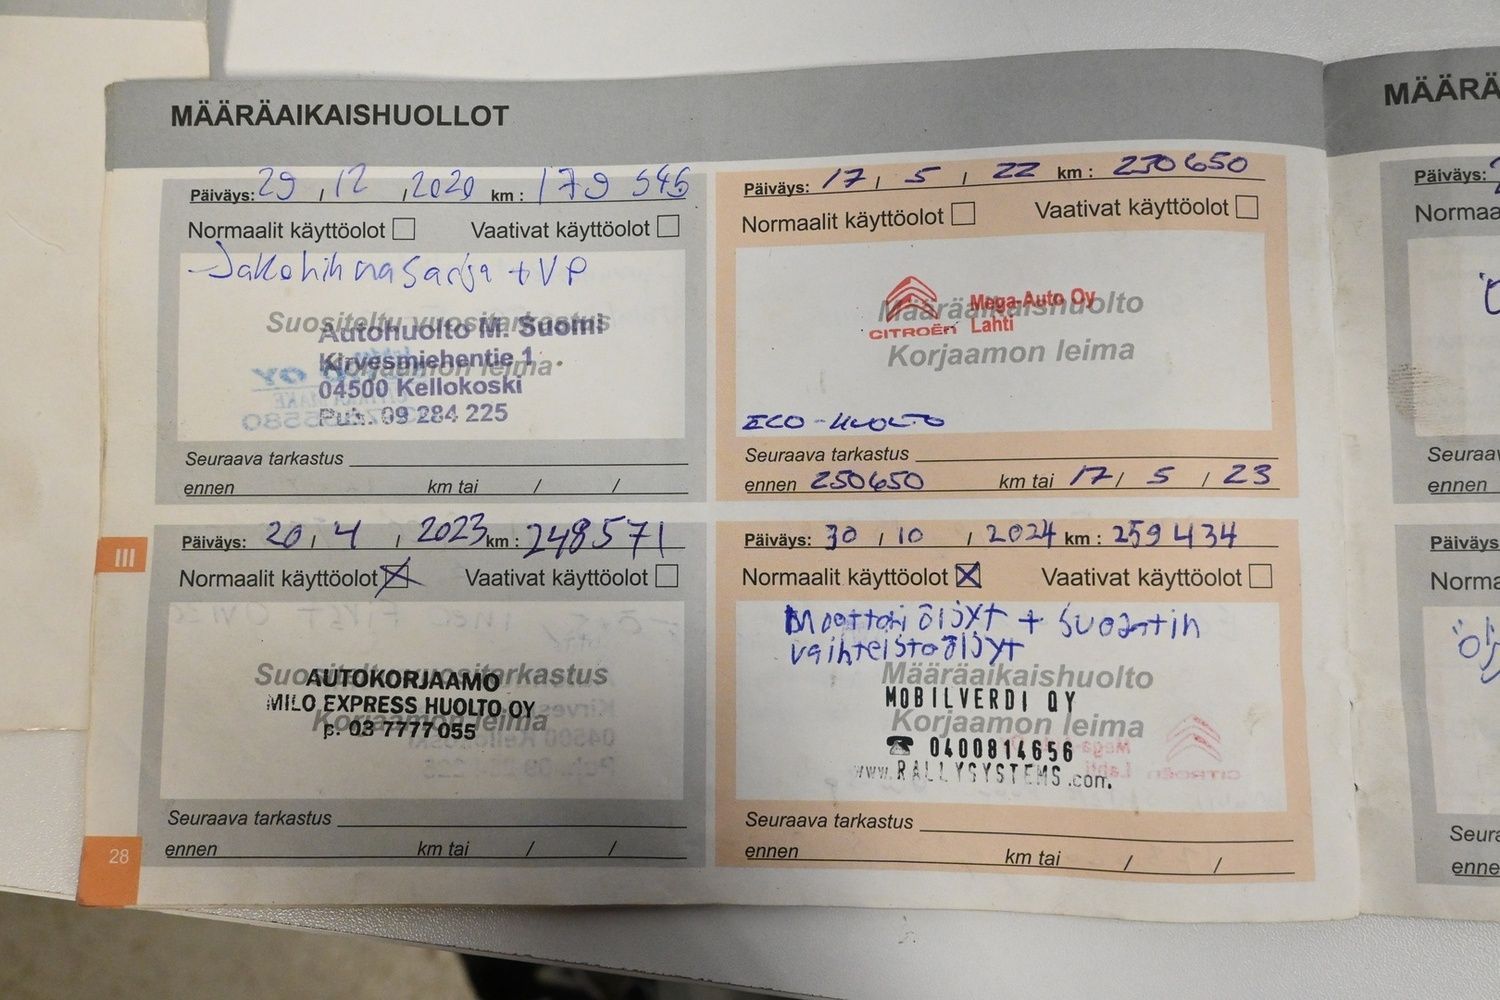 MÄÄRÄAIKAISHUOLLOT
Päiväys: 29 / 12 / 2020 km : 179 545
Normaalit käyttöolot Vaativat käyttöolot
Jakohihnasarja + VP
Suositeltu vuositarkastus
Korjaamon leima
Autohuolto M. Suomi
Kirvesmiehentie 1
04500 Kellokoski
Puh. 09 284 225
Seuraava tarkastus
ennen km tai / /
Päiväys: 17 / 5 / 22 km : 230650
Normaalit käyttöolot Vaativat käyttöolot
Määräaikaishuolto
Korjaamon leima
CITROËN
Mega-Auto Oy
Lahti
ECO-HUOLTO
Seuraava tarkastus
ennen 250650 km tai 17 / 5 / 23
Päiväys: 20 / 4 / 2023 km : 248571
Normaalit käyttöolot Vaativat käyttöolot
Suositeltu vuositarkastus
Korjaamon leima
AUTOKORJAAMO
MILO EXPRESS HUOLTO OY
p. 03 7777 055
Seuraava tarkastus
ennen km tai / /
Päiväys: 30 / 10 / 2024 km : 259434
Normaalit käyttöolot Vaativat käyttöolot
Moottoriöljyt + suodatin
vaihteistoöljyt
Määräaikaishuolto
Korjaamon leima
MOBILVERDI OY
☎ 0400814656
www.RALLYSYSTEMS.com.
Seuraava tarkastus
ennen km tai / /
III
28
MÄÄRÄ
Päiväys:
Normaa
Seuraav
ennen
Päiväys
Norma
Seura
enne